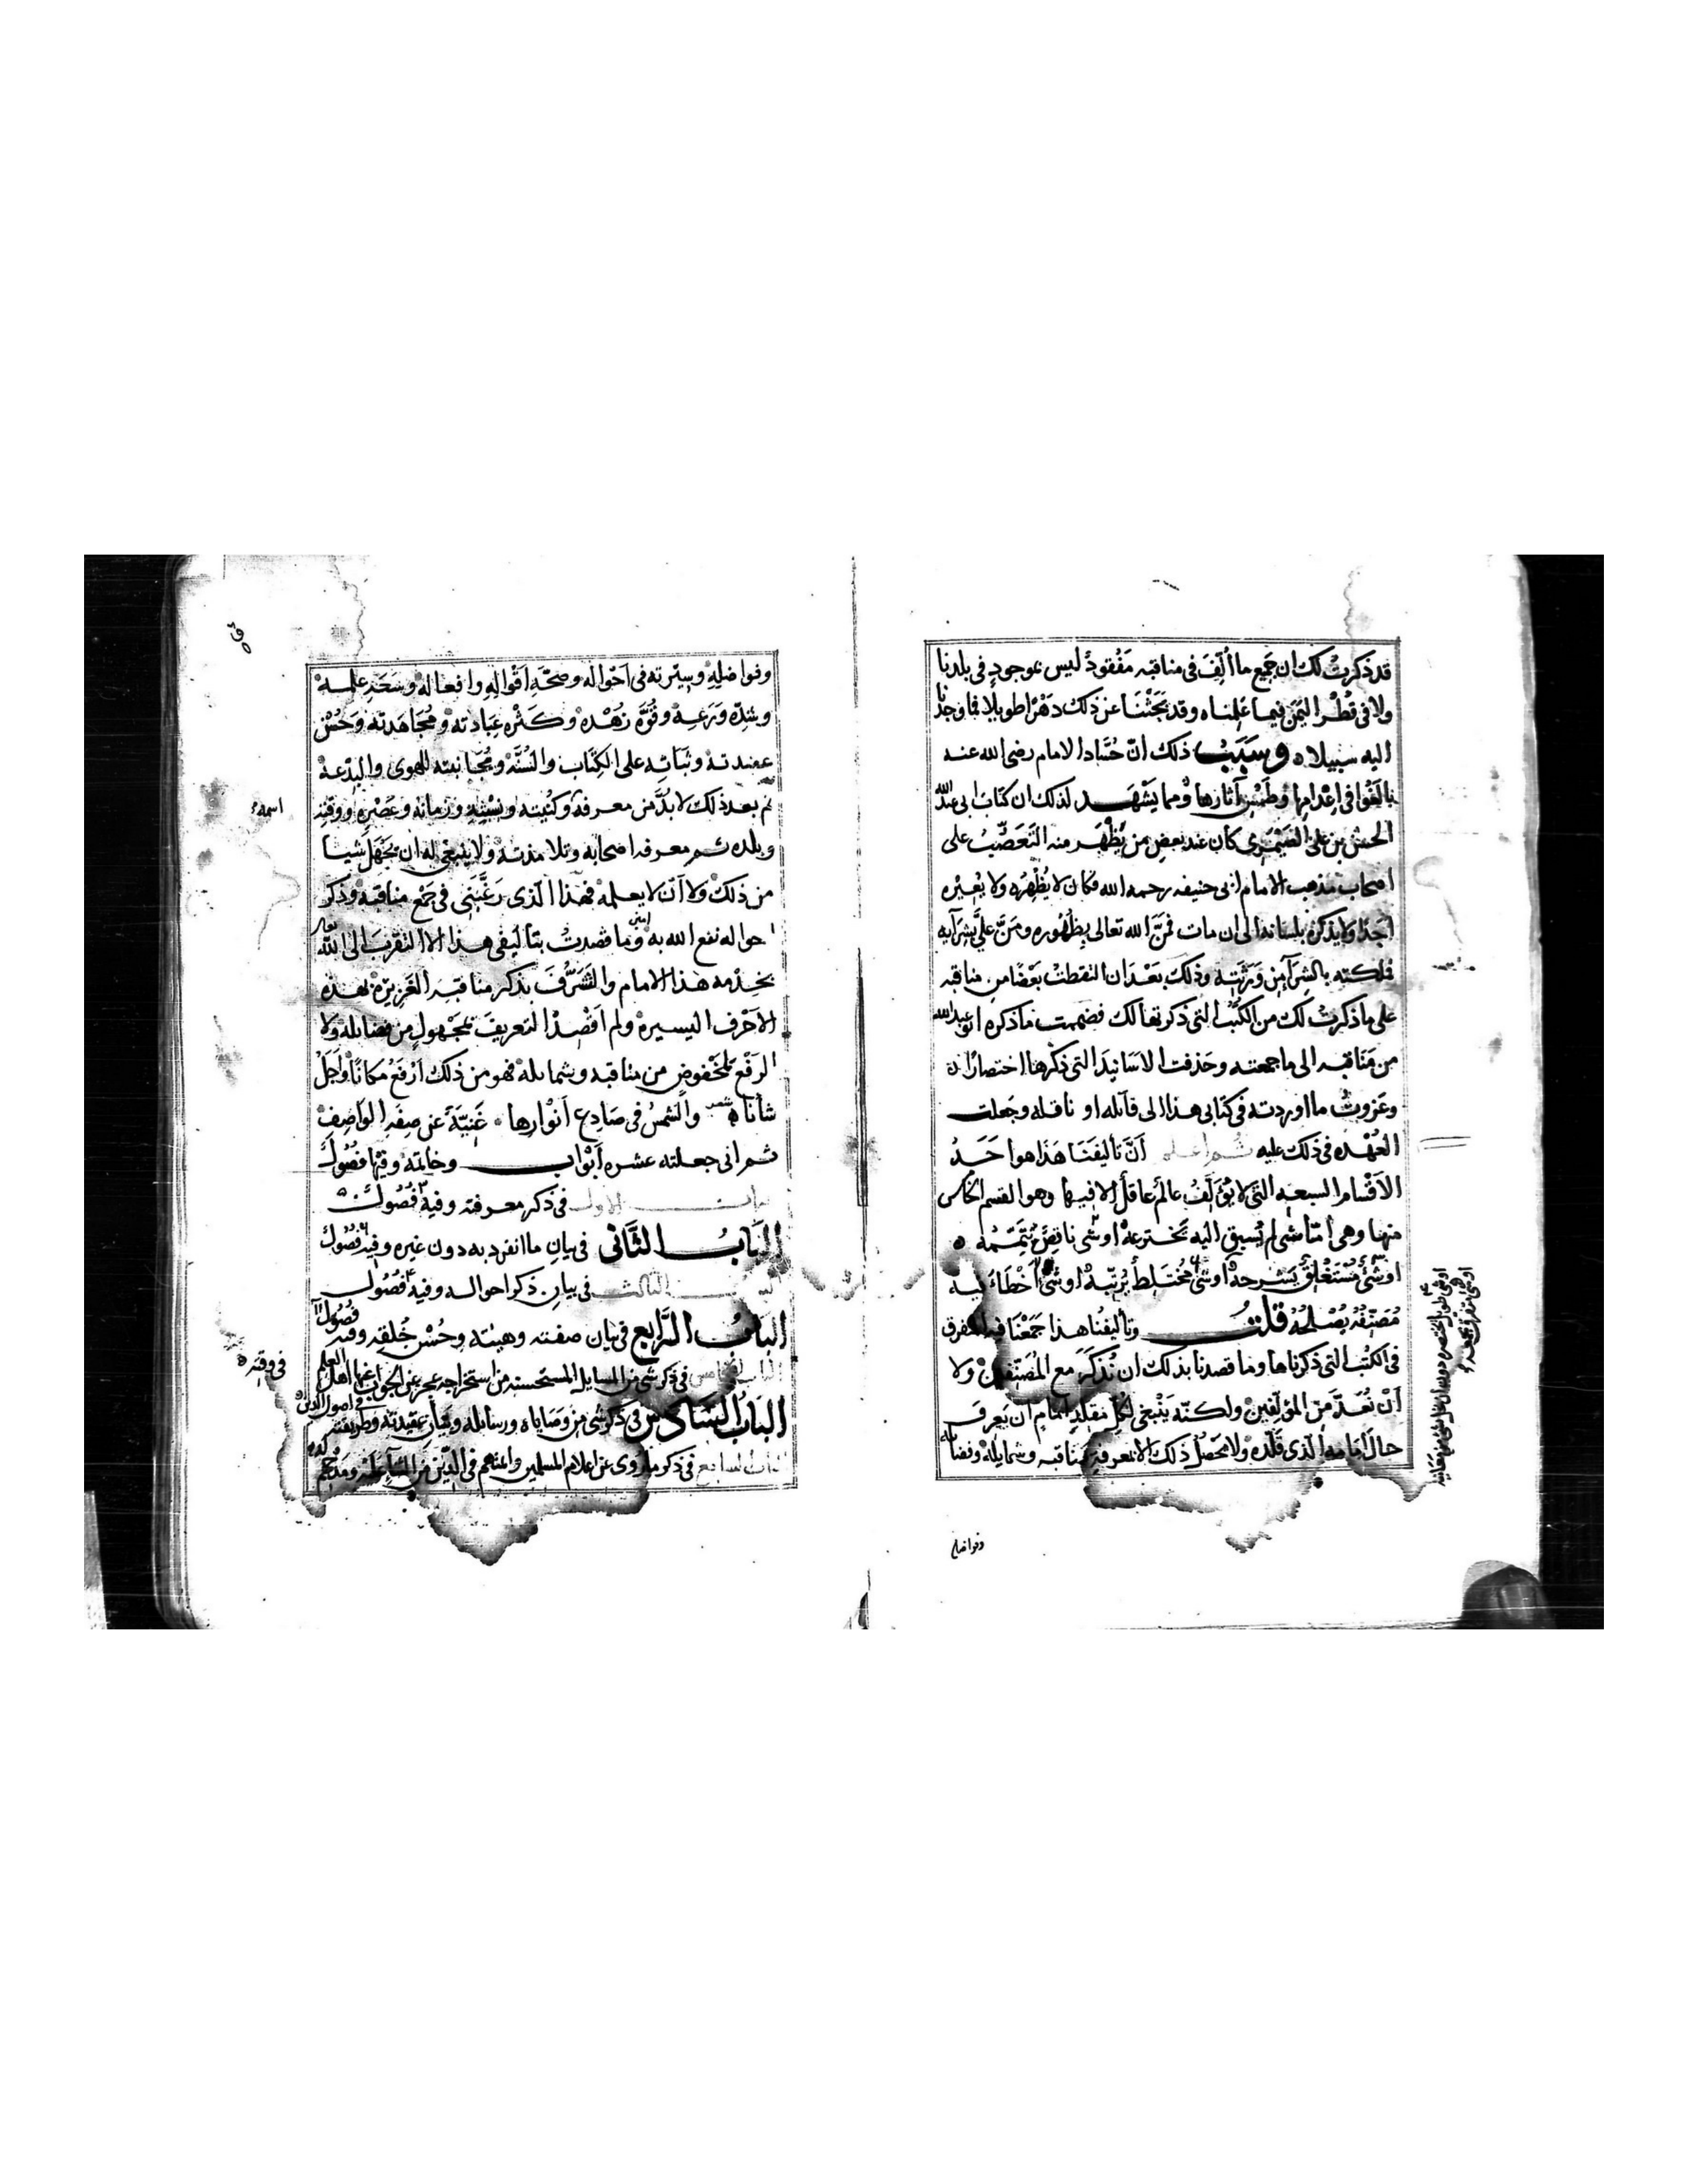 قد ذكرت لك ان جميع ما أُلِّفَ في مناقبه مَفْقودٌ ليس بموجودٍ في بلدنا
ولا في قُطْر اليَمَن فيما عَلِمناه وقد بَحَثْنَا عن ذلك دَهْرًا طويلًا فما وجدنا
اليه سبيلا ه وسَبَبُ ذلك انّ حُسّاد الامام رضى الله عنه
بالَغُوا في اِعْدامِها وطَمْسِ آثارها ومما يشهد لذلك ان كتاب ابى عبد الله
الحسن بن على الصَّيْمَرى كان عند بعض من يُظْهَر منه التَعَصُّبُ على
اصحاب مذهب الامام ابى حنيفه رحمه الله فكان لا يُظْهِرُه ولا يُعِيْره
أحَدًا ولا يَذكُره بلسانه الى ان مات فَمَنَّ الله تعالى بِظُهُوره ومَنَّ علىَّ بِشِرَآيِه
فملكته بالشِرَآ من وَرَثَتِه وذلك بَعْدَ ان التقطتُ بَعْضًا من مناقبه
على ما ذكرتُ لك من الكُتُب التى ذكرتها لك فضممت ما ذكره ابو عبد الله
من مَنَاقبه الى ما جمعته وحَذفت الاسَانيدَ التى ذكرها اختصارًا
وعَزوتُ ما اوردته فى كتابى هذا الى قآئله او ناقله وجعلت
العُهْدَه فى ذلك عليه ثم اعلم أنَّ تأليفَنَا هَذَا هو احَدُ
الاَقْسام السبعه التى لا يُؤَلِّفُ عالمٌ عاقلٌ الا فيها وهو القسم الخامس
منها وهى اِمّا شى لم يُسبق اليه يَخْترعهُ او شى ناقِصٌ يُتَمِّمُه
او شىٌ مُسْتَغْلِقٌ يَشرحهُ او شىٌ مُختَلِطٌ يُرَتِّبهُ او شىٌ اَخْطأَ فيه
مُصَنِّفُه يُصْلِحُهُ قلتُ وتأليفُنا هذا جَمَعْنَا فيه المفرق
فى الكُتب التى ذكرناها وما قصدنا بذلك ان نُذكَرَ مع المُصَنِّفين ولا
أنْ نُعَدَّ من المؤلِّفين ولكنّه يَنْبغى لكل مقلدِ امام ان يَعرف
حال اِمَامه الذى قلَّده ولا يَحصُلُ ذلك الا بمعرفةِ مناقبه وشمايله وفضايله
وفواضله
وفواضلِهِ وسِيْرته فى اَحْواله وصحَّةِ اَقْوالِهِ وافعاله وسَعَةِ علمه
وشدّه وَرَعِه وقُوَّه زُهْده وكَثْره عِبادته ومُجَاهَدته وحُسْن
عقيدته وثَبَاتِه على الكِتَاب والسُنَّه ومُجَانبته للهوى والبدعة
ثم بعد ذلك لا بُدَّ من معرفة وكُنيته ونِسْبَته وزمانه وعَصْره ووقته
اسمه
وبلده ثم معرفه اصحابه وتلامذته ولا ينبغى له ان يَجْهَلَ شيا
من ذلك ولا اَنْ لا يعلمه فهذا الذى رَغَّبَنى فى جَمْع مناقبه وذكر
احواله نفع الله به امين وما قصدتُ بتأليفى هذا الا التقرّبَ الى الله تعالى
بخِدْمه هذا الامام والتَشَرُّفَ بذكر مناقبه الغَزيرة بهذه
الاَحْرف اليسيره ولم اَقْصد التعريفَ بمجْهولٍ من فضائله ولا
الرَفْعَ لمخفوضٍ من مناقبه وشمائله فهو من ذلك اَرْفَعُ مكانًا وأجلُّ
شأنا شعر والشمسُ فى صَادِع أَنْوارِها غَنِيّةٌ عن صِفَه الوَاصِفِ
ثم انى جعلته عشره أبْواب وخاتمه وفيها فصُولٌ
الباب الاول فى ذكر معرفته وفيه ٣ فُصُول
البَابُ الثَّانى فى بيانِ ما انفرد به دون غيره وفيه فصُول
الباب الثالث فى بيانِ ذكر احواله وفيه فُصُول
البابُ الرَّابع فى بيان صفته وهيئته وحُسْن خُلقِه وفيه فُصُول
الباب الخامس فى ذكر شى من المسايل المستحسنه من استخراجه عجز عن الجواب عنها اهل العلم
فى وقته
البَابُ السَّادس فى ذكر شى من وَصَاياه ورسائله وبيان عقيدته وطريقته فى اصول الدين
الباب السابع فى ذكر ما روى عن اعلام المسلمين وائمتهم فى الدين من الثنآ عليه ومَدْحهم له